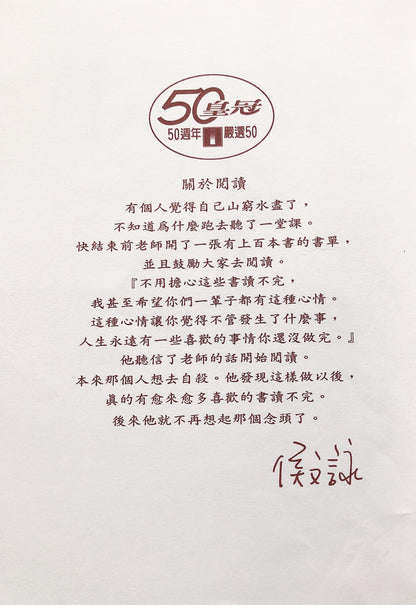 50皇冠
50週年 嚴選50
關於閱讀
有個人覺得自己山窮水盡了，
不知道爲什麼跑去聽了一堂課。
快結束前老師開了一張有上百本書的書單，
並且鼓勵大家去閱讀。
『不用擔心這些書讀不完，
我甚至希望你們一輩子都有這種心情。
這種心情讓你覺得不管發生了什麼事，
人生永遠有一些喜歡的事情你還沒做完。』
他聽信了老師的話開始閱讀。
本來那個人想去自殺。他發現這樣做以後，
眞的有愈來愈多喜歡的書讀不完。
後來他就不再想起那個念頭了。
侯文詠